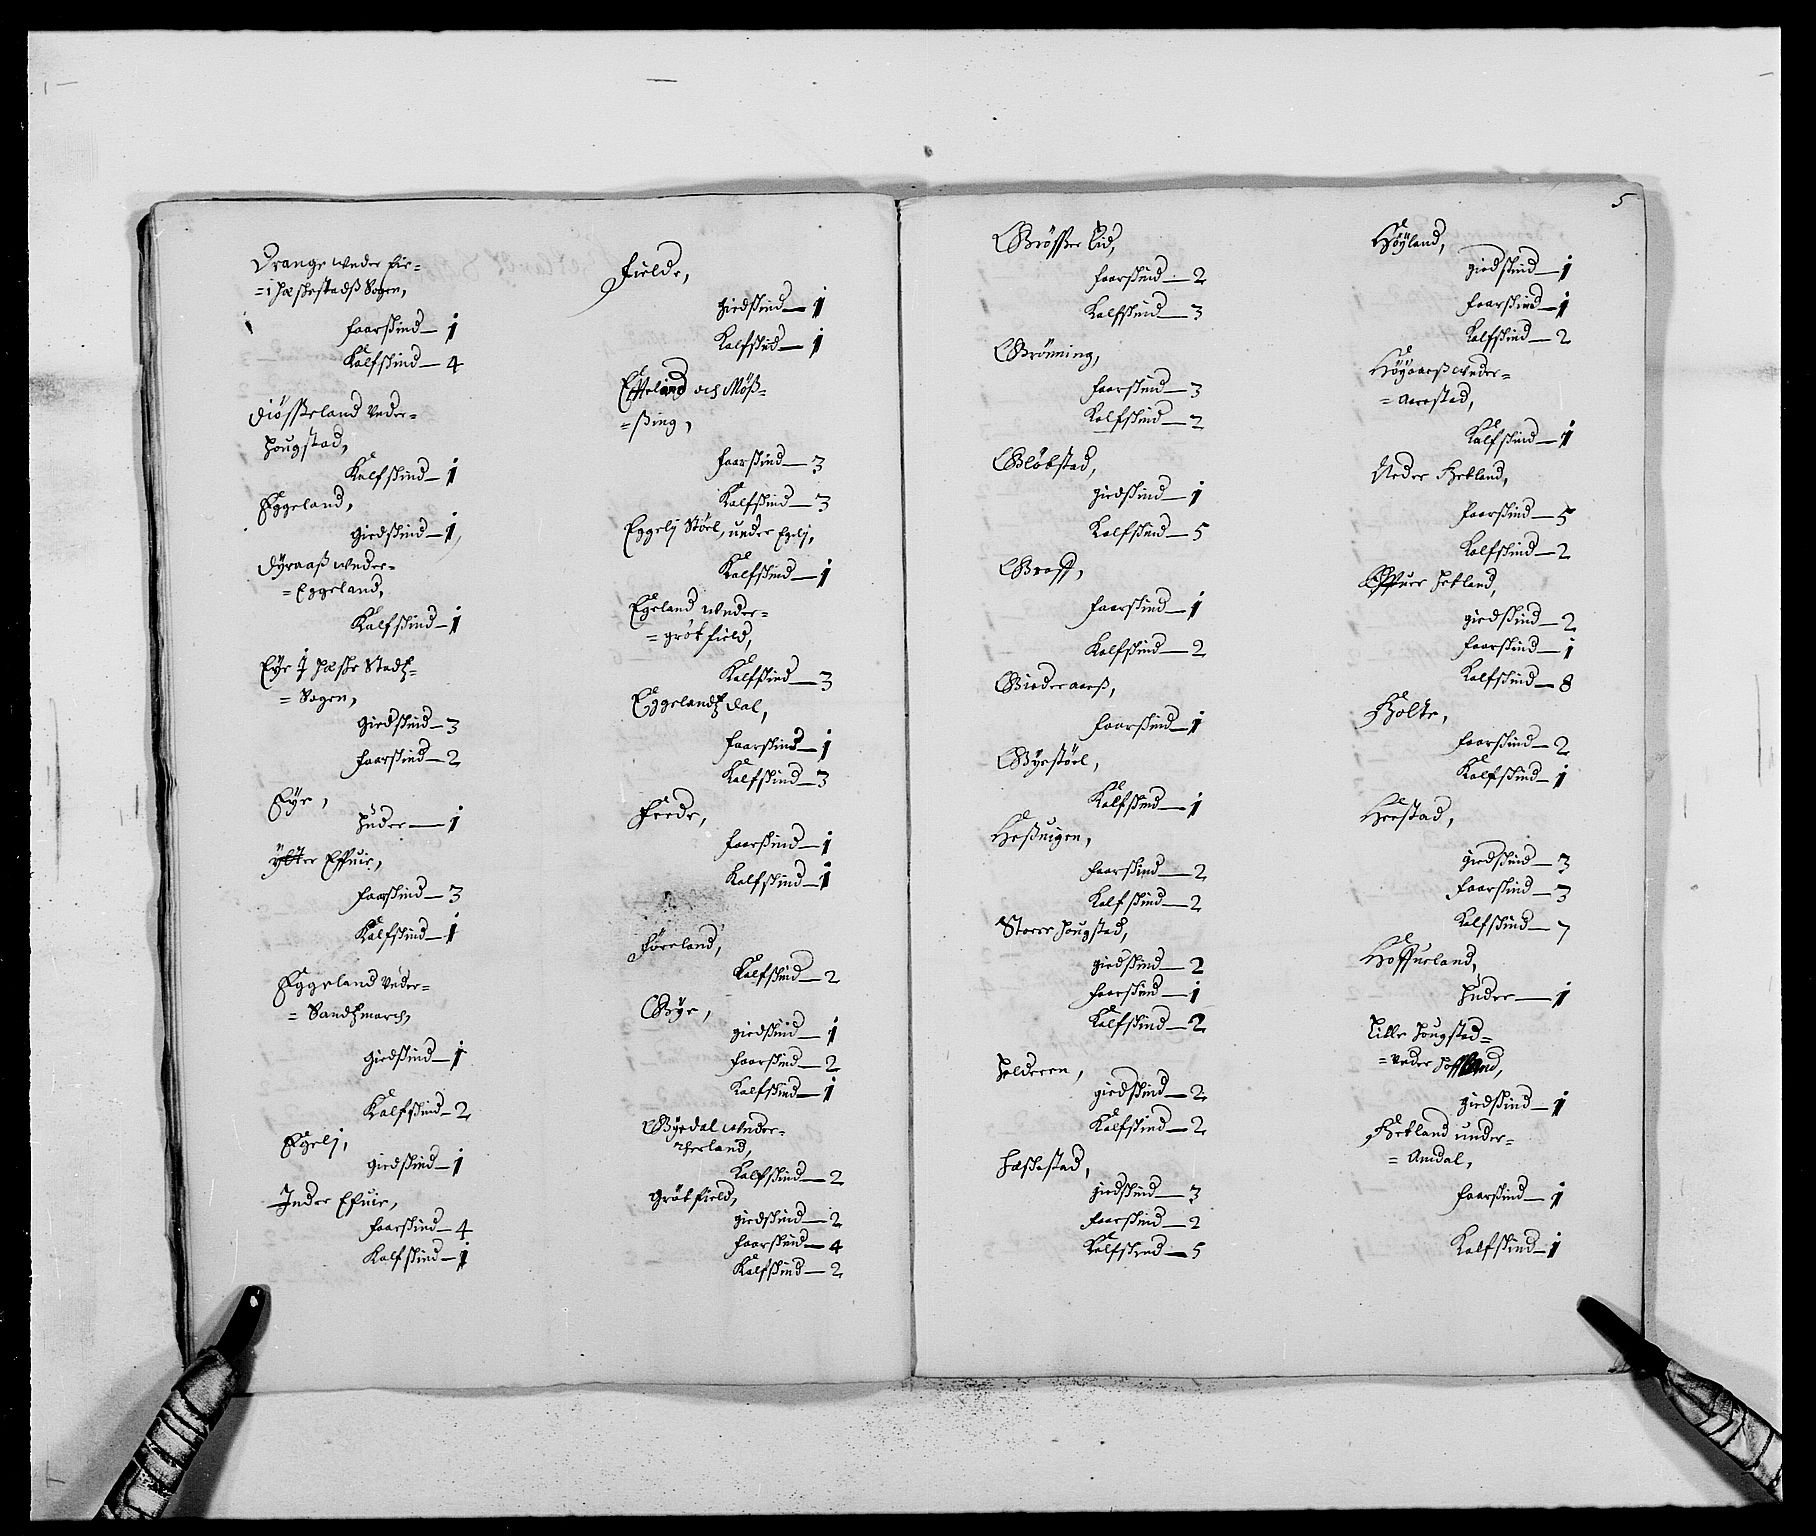 Drange under Eie=
=i Heskestadß Sogen,
faarskind — 1
Kalfskind — 4
Diösseland under=
Hougstad,
Kalfskind — 1
Eggeland,
giedskind — 1
Dyraaß under=
= Eggeland,
Kalfskind — 1
Eye i Heske Stadtz=
= Sogen,
giedskind — 3
faarskind — 2
Eye,
Huder — 1
ytter Effuie,
faarskind — 3
Kalfskind — 1
Eggeland under=
= Sandtzmarch,
giedskind — 1
Kalfskind — 2
Egelj,
giedskind — 1
Inder Efuie,
faarskind — 4
Kalfskind — 1
Fielde,
giedskind — 1
Kalfskind — 1
Effteland och Möß=
= ßing,
faarskind — 3
Kalfskind — 3
Eggelj Stöel, under Egelj,
Kalfskind — 1
Egeland under=
= grötfield,
Kalfskind — 3
Eggelandtz dal,
faarskind — 1
Kalfskind — 3
Feede,
faarskind — 1
Kalfskind — 1
Föreland,
Kalfskind — 2
Gye,
giedskind — 1
faarskind — 2
Kalfskind — 1
Gyedal under=
Kalfskind — 2
Grötfield,
giedskind — 2
faarskind — 4
Kalfskind — 2
5
Grösser lid,
faarskind — 2
Kalfskind — 3
Grönning,
faarskind — 3
Kalfskind — 2
Glöbstad,
giedskind — 1
Kalfskind — 5
Graff,
faarskind — 1
Kalfskind — 2
Giederaaß,
faarskind — 1
Gyestöel,
Kalfskind — 1
Heßuigen,
faarskind — 2
Kalfskind — 2
Storre Hougstad,
giedskind — 2
faarskind — 1
Kalfskind — 2
Helderen,
giedskind — 2
Kalfskind — 2
Heskestad,
giedskind — 3
faarskind — 2
Kalfskind — 5
Höyland,
giedskind — 1
faarskind — 1
Kalfskind — 2
Höyaaß under=
= Aarstad,
Kalfskind — 1
Neder Hetland,
faarskind — 5
Kalfskind — 2
Offuer Hetland,
giedskind — 2
faarskind — 1
Kalfskind — 8
Holte,
faarskind — 2
Kalfskind — 1
Heestad,
giedskind — 3
faarskind — 3
Kalfskind — 7
Hoffueland,
Huder — 1
Lille Hougstad=
= under Hoffland,
giedskind — 1
Hetland under=
= Amdal,
faarskind — 1
Kalfskind — 1